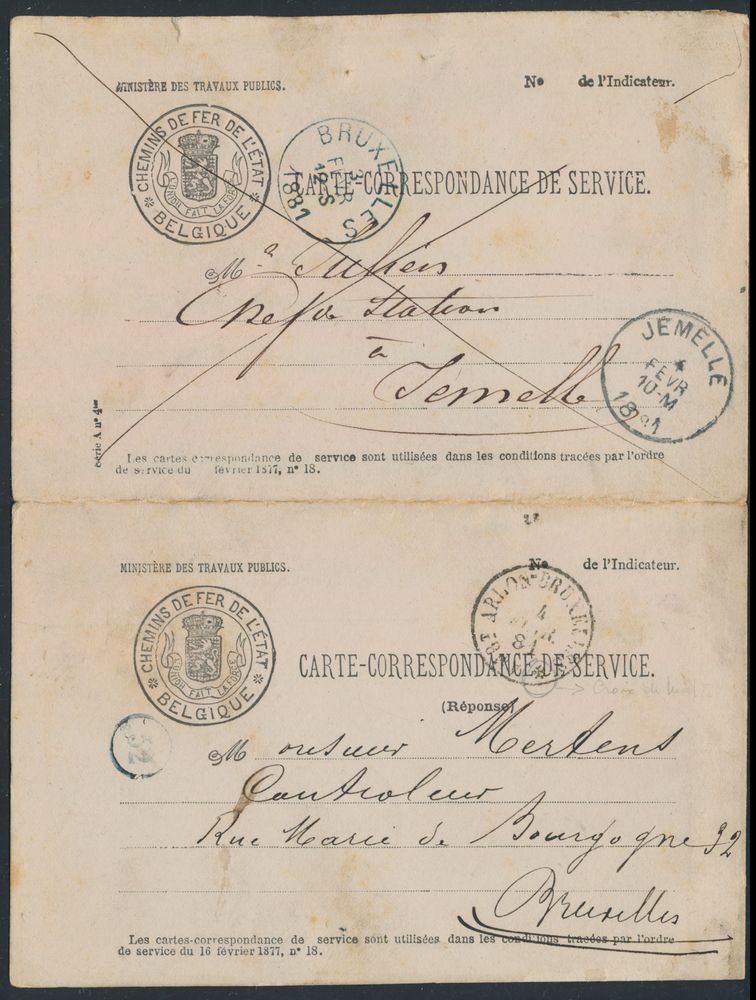 MINISTÈRE DES TRAVAUX PUBLICS.
No de l'Indicateur.
CHEMINS DE FER DE L'ÉTAT
BELGIQUE
L'UNION FAIT LA FORCE
BRUXELLES
3
FEVR
12-S
1881
CARTE-CORRESPONDANCE DE SERVICE.
M
Chef de Station
à
Jemelle
JEMELLE
FEVR
10-M
1881
Série A n° 4
Les cartes correspondance de service sont utilisées dans les conditions tracées par l'ordre
de service du février 1877, n° 18.
MINISTÈRE DES TRAVAUX PUBLICS.
No de l'Indicateur.
CHEMINS DE FER DE L'ÉTAT
BELGIQUE
L'UNION FAIT LA FORCE
ARLON-BRUXELLES
4
CARTE-CORRESPONDANCE DE SERVICE.
(Réponse)
32
Monsieur Mertens
Controleur
Rue Marie de Bourgogne 32
Bruxelles
Les cartes-correspondance de service sont utilisées dans les conditions tracées par l'ordre
de service du 16 février 1877, n° 18.